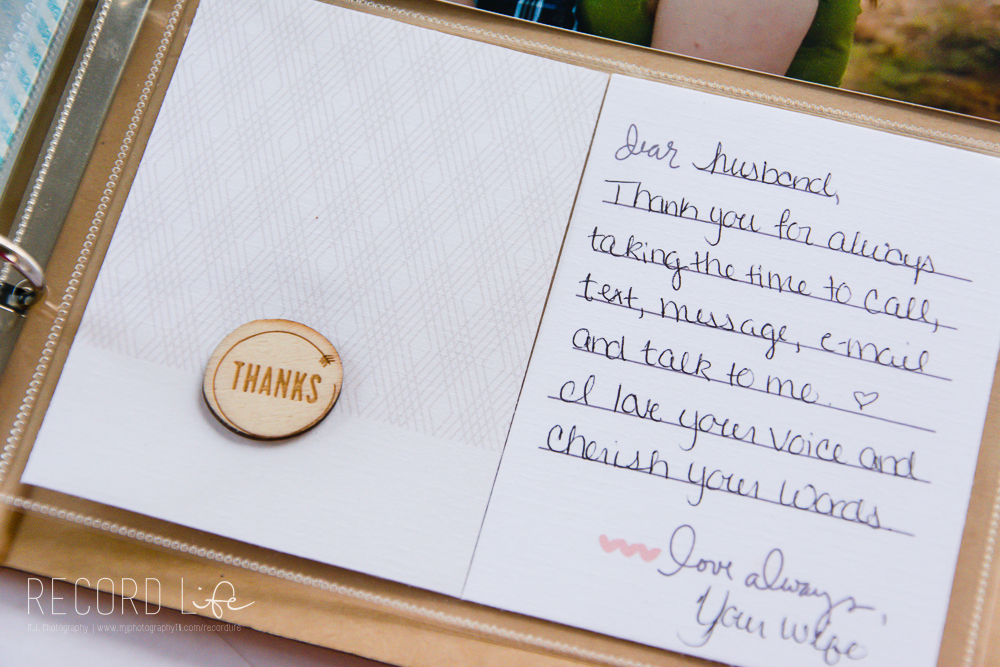 THANKS
dear husband,
Thank you for always
taking the time to call,
text, message, e-mail
and talk to me. ♡
I love your voice and
cherish your words.
love always,
Your wife
RECORD Life
M.J. Photography | www.mjphotography11.com/recordlife